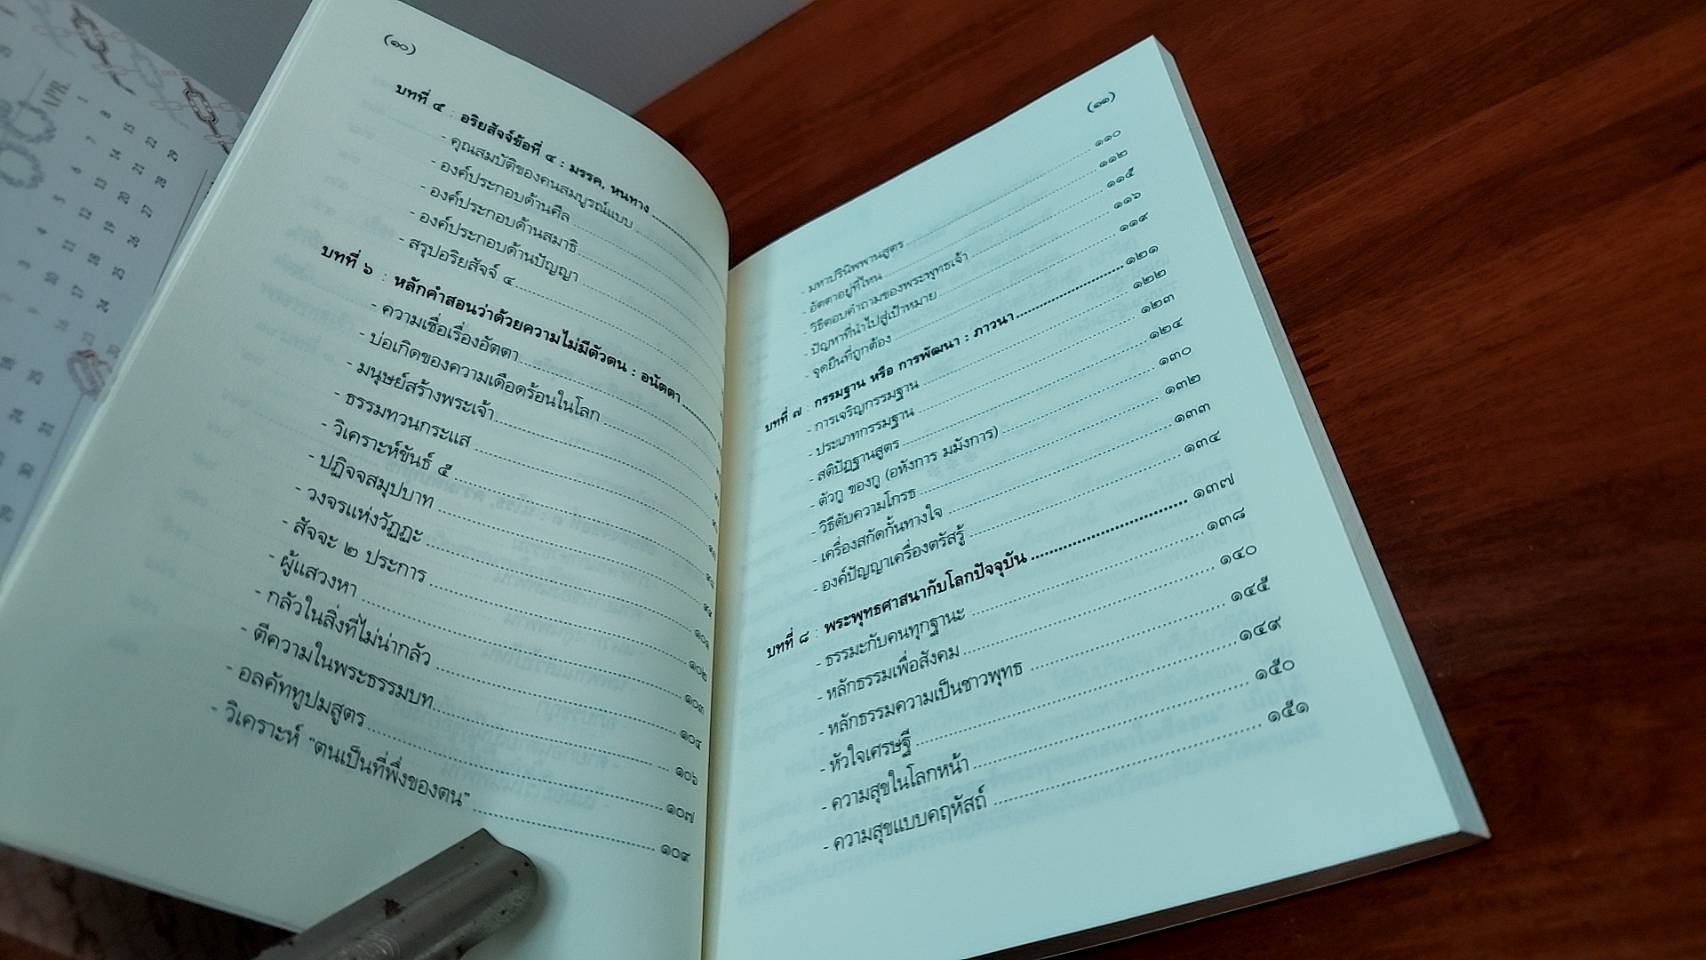 (๑๐)
บทที่ ๕ : อริยสัจจ์ข้อที่ ๔ : มรรค, หนทาง
- คุณสมบัติของคนสมบูรณ์แบบ
- องค์ประกอบด้านศีล
- องค์ประกอบด้านสมาธิ
- องค์ประกอบด้านปัญญา
- สรุปอริยสัจจ์ ๔
บทที่ ๖ : หลักคำสอนว่าด้วยความไม่มีตัวตน : อนัตตา
- ความเชื่อเรื่องอัตตา
- บ่อเกิดของความเดือดร้อนในโลก
- มนุษย์สร้างพระเจ้า
- ธรรมทวนกระแส
- วิเคราะห์ขันธ์ ๕
- ปฏิจจสมุปบาท
- วงจรแห่งวัฏฏะ
- สัจจะ ๒ ประการ
- ผู้แสวงหา ๑๐๒
- กลัวในสิ่งที่ไม่น่ากลัว ๑๐๓
- ตีความในพระธรรมบท ๑๐๔
- อลคัททูปมสูตร ๑๐๗
- วิเคราะห์ "ตนเป็นที่พึ่งของตน" ๑๐๙
(๑๑)
- มหาปรินิพพานสูตร ๑๑๐
- อัตตาอยู่ที่ไหน ๑๑๒
- วิธีตอบคำถามของพระพุทธเจ้า ๑๑๕
- ปัญหาที่นำไปสู่เป้าหมาย ๑๑๖
- จุดยืนที่ถูกต้อง ๑๑๙
บทที่ ๗ : กรรมฐาน หรือ การพัฒนา : ภาวนา ๑๒๑
- การเจริญกรรมฐาน ๑๒๒
- ประเภทกรรมฐาน ๑๒๓
- สติปัฏฐานสูตร ๑๒๔
- ตัวกู ของกู (อหังการ มมังการ) ๑๓๐
- วิธีดับความโกรธ ๑๓๒
- เครื่องสกัดกั้นทางใจ ๑๓๓
- องค์ปัญญาเครื่องตรัสรู้ ๑๓๔
บทที่ ๘ : พระพุทธศาสนากับโลกปัจจุบัน ๑๓๗
- ธรรมะกับคนทุกฐานะ ๑๓๘
- หลักธรรมเพื่อสังคม ๑๔๐
- หลักธรรมความเป็นชาวพุทธ ๑๔๕
- หัวใจเศรษฐี ๑๔๙
- ความสุขในโลกหน้า ๑๕๐
- ความสุขแบบคฤหัสถ์ ๑๕๑